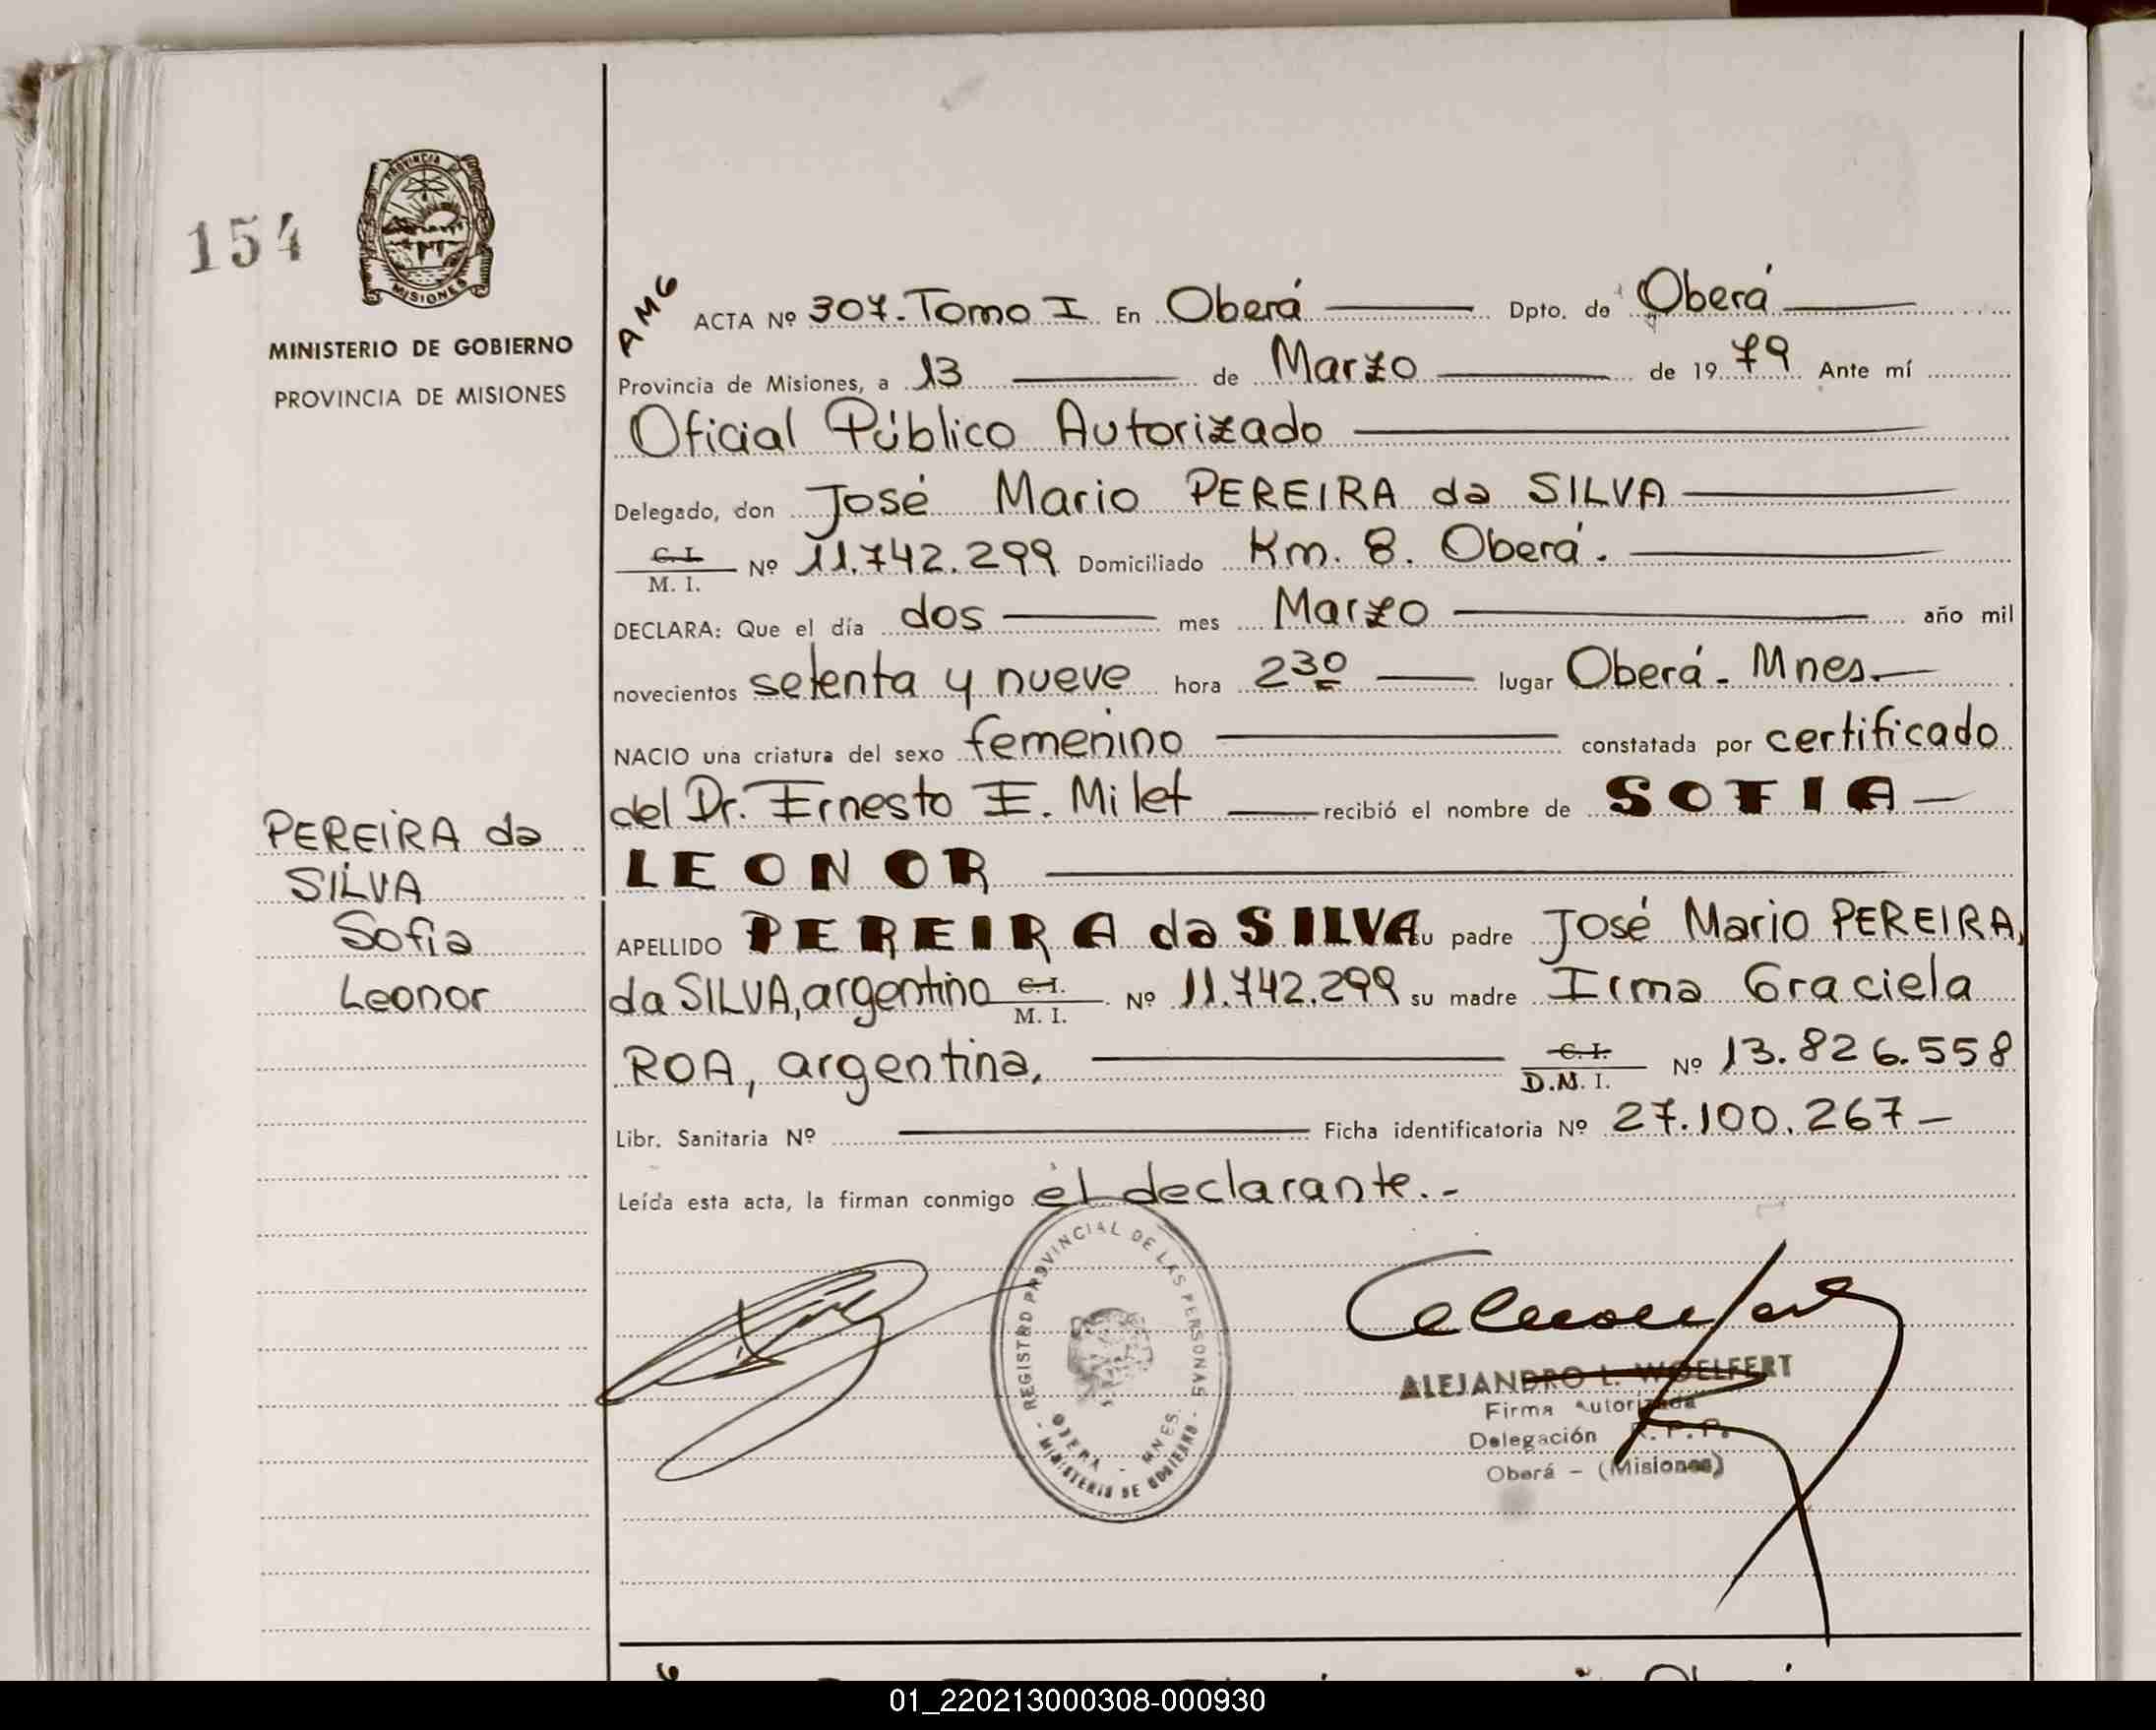 154
PROVINCIA DE
MISIONES
MINISTERIO DE GOBIERNO
PROVINCIA DE MISIONES
AMG
ACTA Nº 307. Tomo I En Oberá Dpto. de Oberá
Provincia de Misiones, a 13 de Marzo de 19 79 Ante mí
Oficial Público Autorizado
Delegado, don José Mario PEREIRA da SILVA
C.I.
M. I. Nº 11.742.299 Domiciliado Km. 8. Oberá.
DECLARA: Que el día dos mes Marzo año mil
novecientos setenta y nueve hora 2 30 lugar Oberá - Mnes.
NACIO una criatura del sexo femenino constatada por certificado
del Dr. Ernesto E. Milet recibió el nombre de SOFIA
LEONOR
APELLIDO PEREIRA da SILVA su padre José Mario PEREIRA
da SILVA, argentino C.I. M. I. Nº 11.742.299 su madre Irma Graciela
ROA, argentina, C.I. D.M. I. Nº 13.826.558
Libr. Sanitaria Nº Ficha identificatoria Nº 27.100.267 —
Leída esta acta, la firman conmigo él declarante. -
PEREIRA da
SILVA
Sofia
Leonor
REGISTRO PROVINCIAL DE LAS PERSONAS
OBERA - MNES.
- MINISTERIO DE GOBIERNO -
ALEJANDRO L. WOELFERT
Firma Autorizada
Delegación R. P. P.
Oberá - (Misiones)
01_220213000308-000930